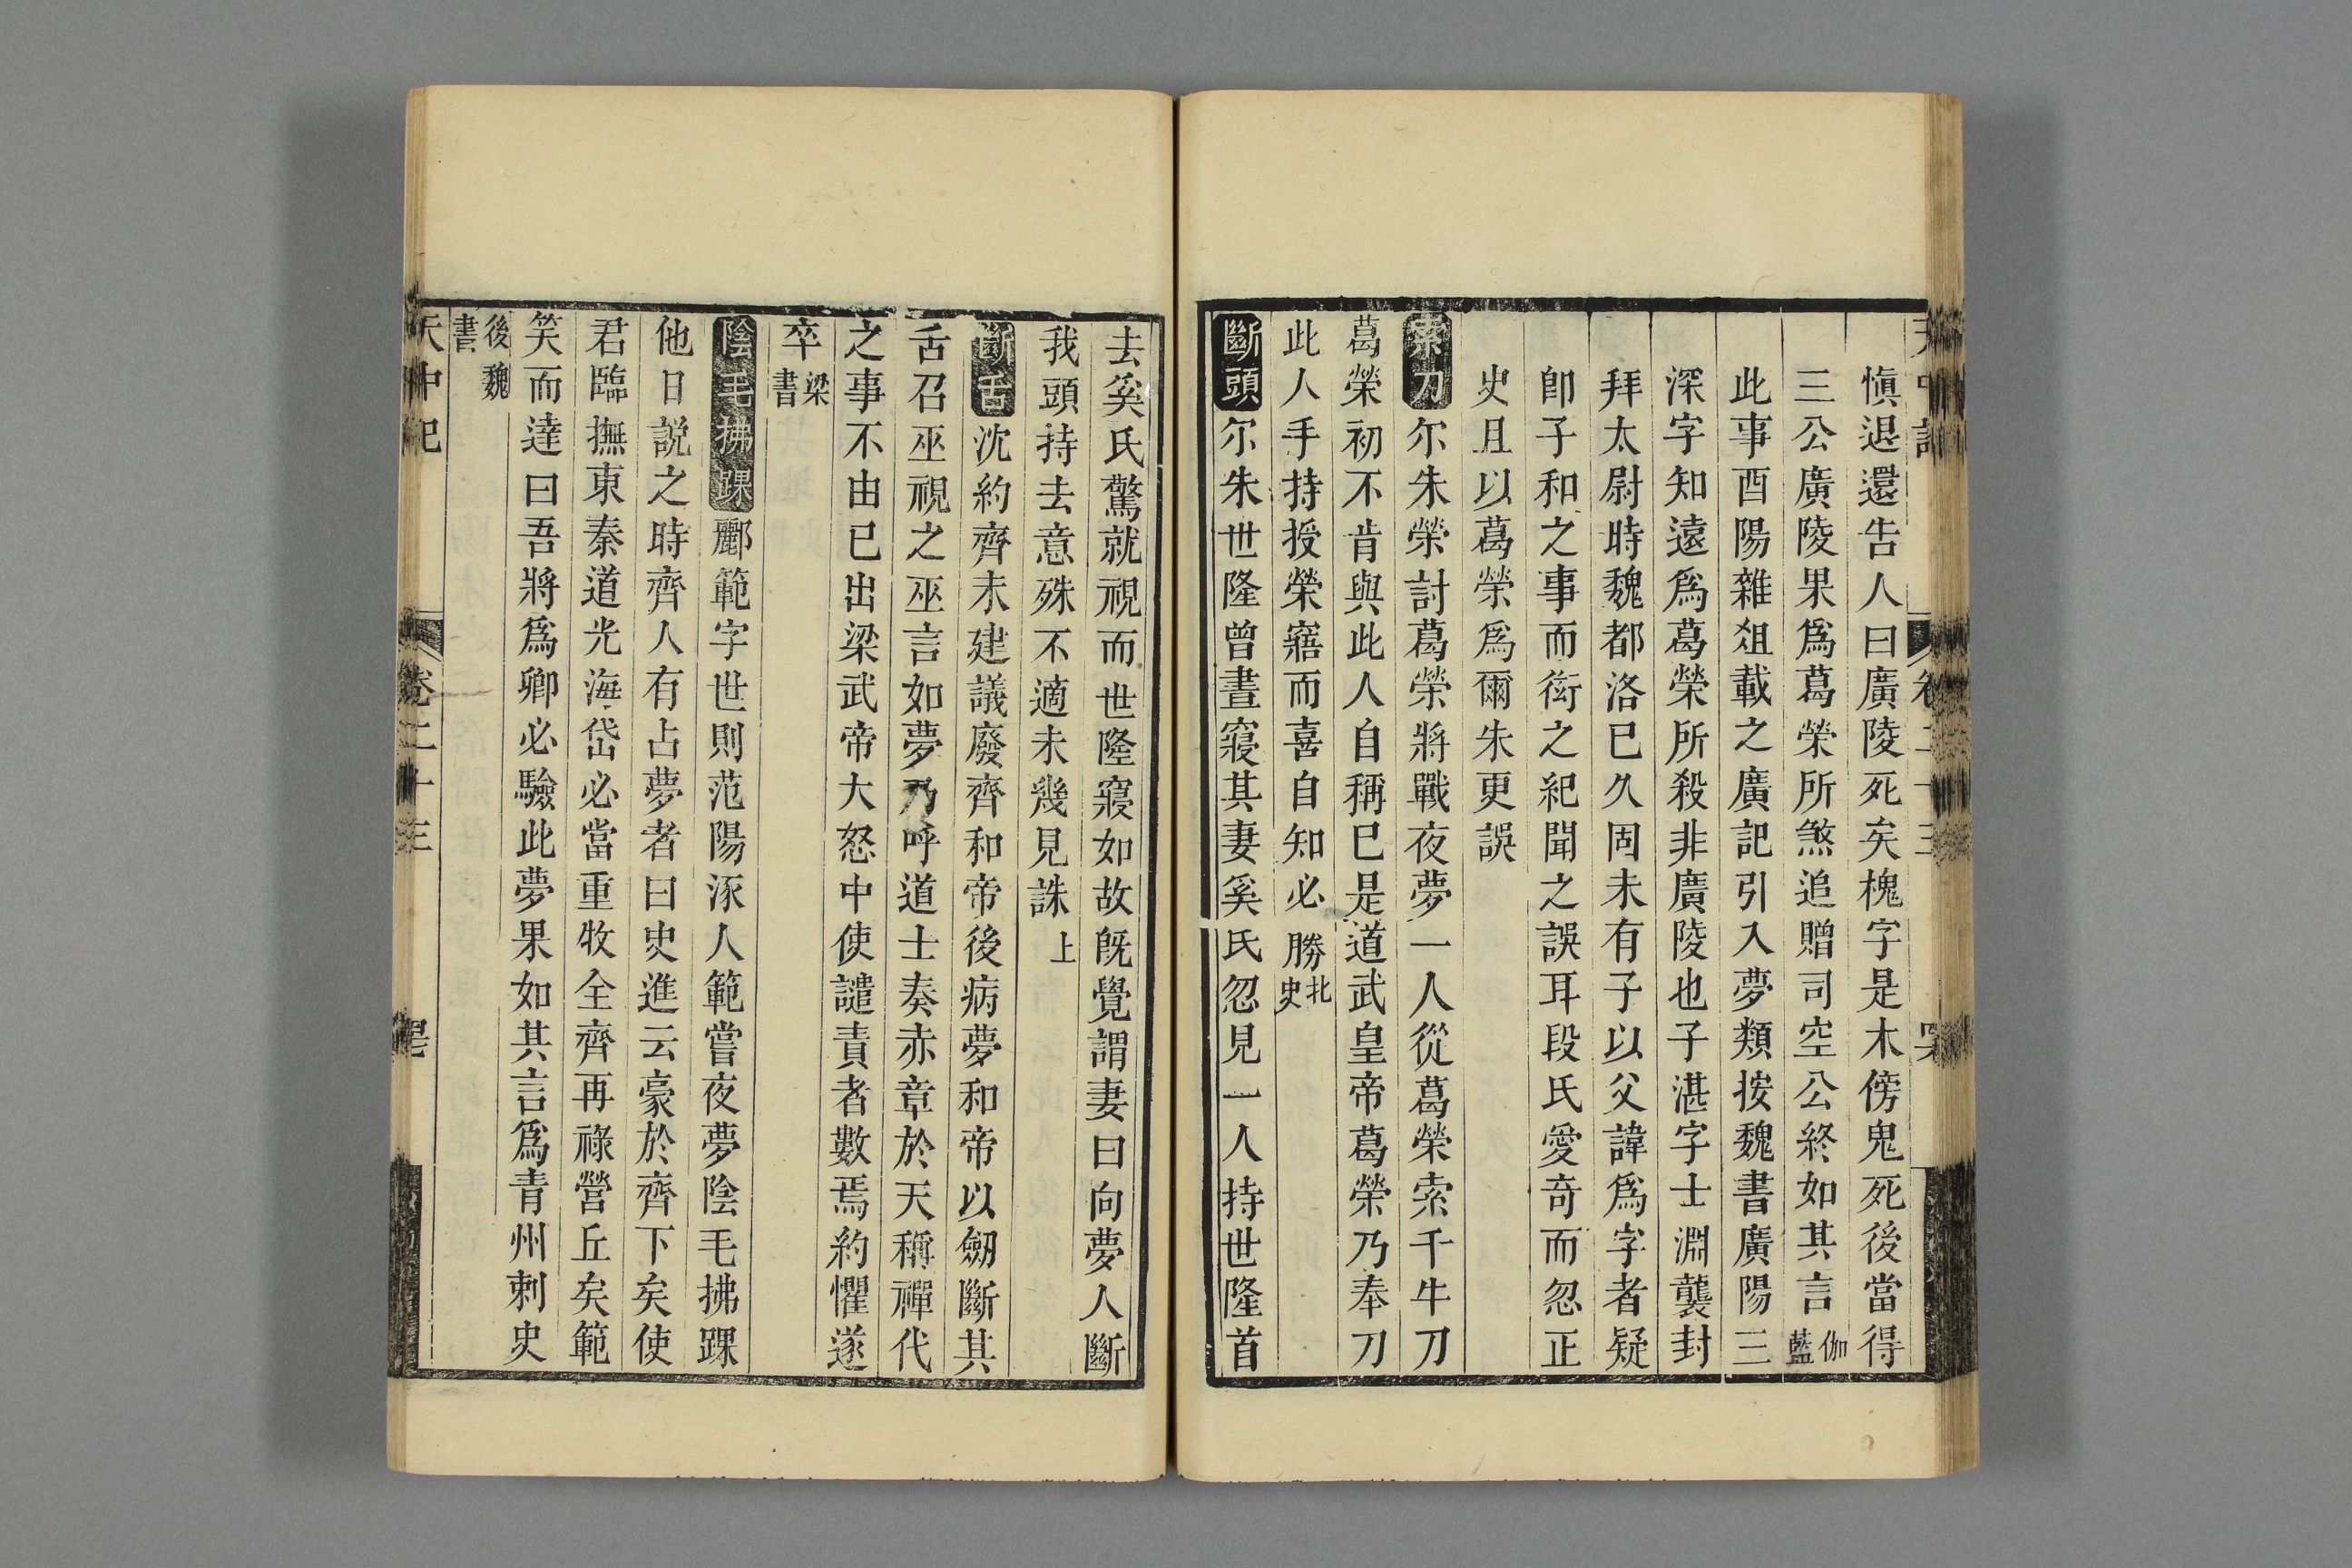 愼退還告人曰廣陵死矣槐字是木傍鬼死後當得
三公廣陵果爲葛榮所煞追贈司空公終如其言伽藍
此事酉陽雜俎載之廣記引入夢類按魏書廣陽三
深字知遠爲葛榮所殺非廣陵也子湛字士淵襲封
拜太尉時魏都洛已久固未有子以父諱爲字者疑
卽子和之事而衒之紀聞之誤耳段氏愛奇而忽正
史且以葛榮爲爾朱更誤
索刀尔朱榮討葛榮將戰夜夢一人從葛榮索千牛刀
葛榮初不肯與此人自稱已是道武皇帝葛榮乃奉刀
此人手持授榮寤而喜自知必勝北史
斷頭尔朱世隆曾晝寢其妻奚氏忽見一人持世隆首
去奚氏驚就視而世隆寢如故旣覺謂妻曰向夢人斷
我頭持去意殊不適未幾見誅上
斷舌沈約齊末建議廢齊和帝後病夢和帝以劒斷其
舌召巫視之巫言如夢乃呼道士奏赤章於天稱禪代
之事不由已出梁武帝大怒中使譴責者數焉約懼遂
卒梁書
陰毛拂踝酈範字世則范陽涿人範嘗夜夢陰毛拂踝
他日説之時齊人有占夢者曰史進云豪於齊下矣使
君臨撫東秦道光海岱必當重牧全齊再祿營丘矣範
笑而達曰吾將爲卿必驗此夢果如其言爲青州刺史
後魏書
天中記
卷二十三